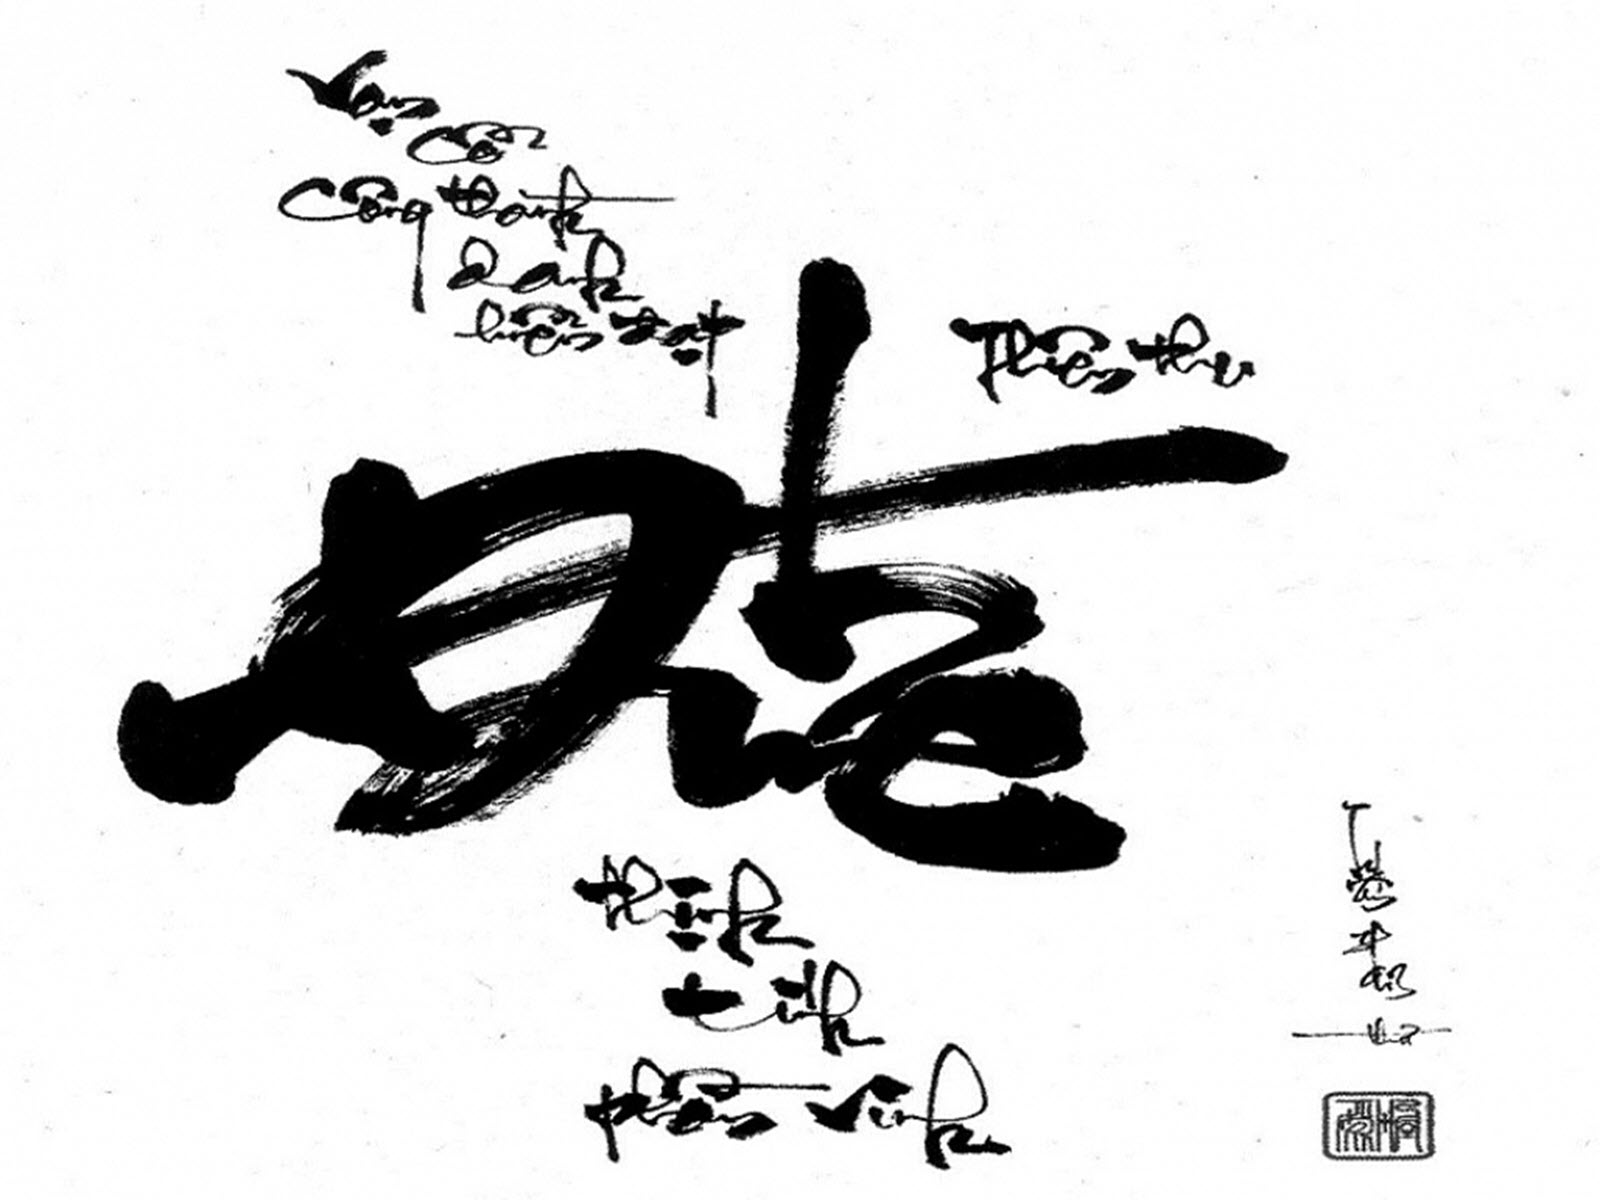 Vạn cổ
công thành
danh
hiển đạt
Thiên thu
Đức
thịnh
tính
phồn vinh